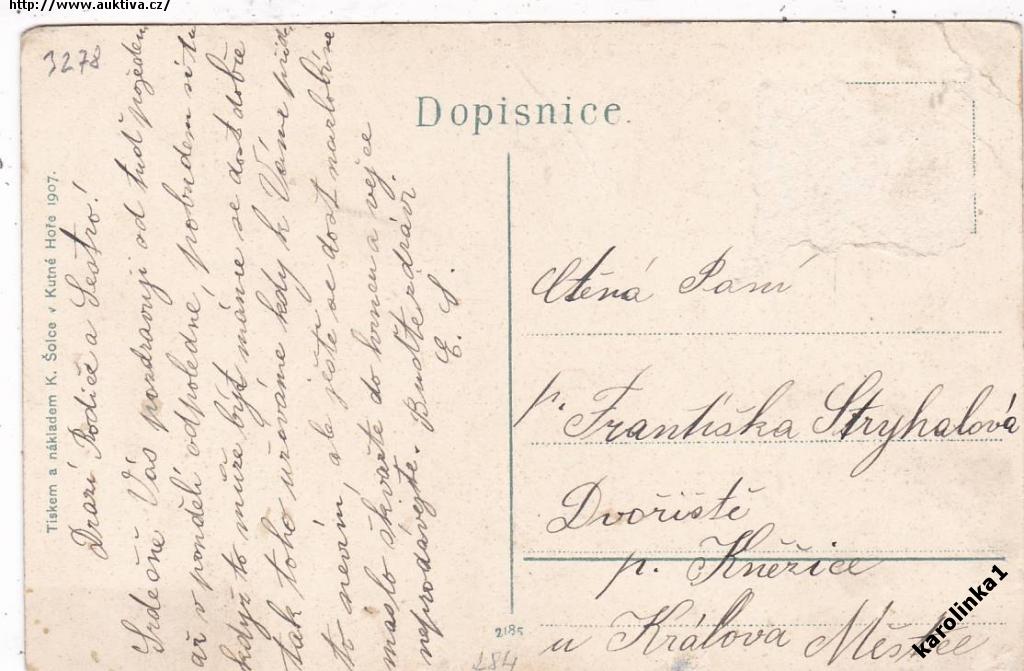 http://www.auktiva.cz/
3278
Tiskem a nákladem K. Šolce v Kutné Hoře 1907.
Drazí Rodiče a Sestro!
Srdečně Vás pozdravuji od tud pojedem
až v pondělí odpoledne, pobudem si tu
když to může být máme se dost dobře
tak toho užíváme kdy k Vám přijdu
to nevím, ale ještě se dost nazlobíme
maslo škvařte do hrnců a vejce
neprodavejte. Buďte zdrávi.
E. S.
Dopisnice.
Ctěná Paní
p. Františka Stryhalová
Dvořiště
p. Kněžice
u Králova Městce
2185
184
karolinka1